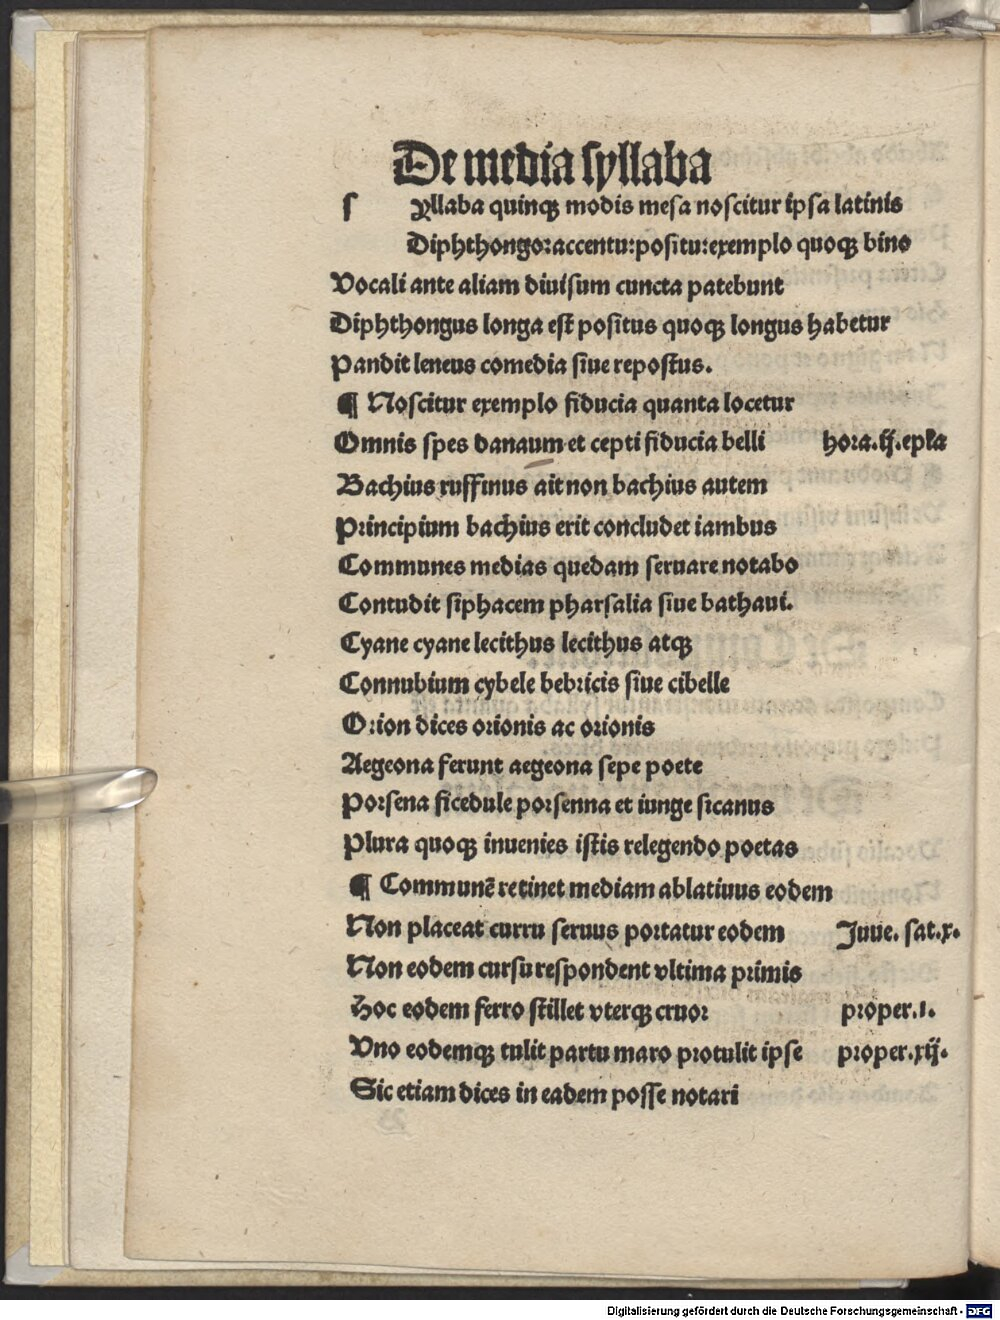 De media syllaba
ſ yllaba quinqꝫ modis mesa noscitur ipsa latinis
Diphthongo: accentu: positu: exemplo quoqꝫ bino
Vocali ante aliam diuisum cuncta patebunt
Diphthongus longa est positus quoqꝫ longus habetur
Pandit leneus comedia siue repostus.
¶ Noscitur exemplo fiducia quanta locetur
Omnis spes danaum et cepti fiducia belli hora.ij.epła
Bachius ruffinus ait non bachius autem
Principium bachius erit concludet iambus
Communes medias quedam seruare notabo
Contudit siphacem pharsalia siue bathaui.
Cyane cyane lecithus lecithus atqꝫ
Connubium cybele bebricis siue cibelle
Orion dices orionis ac orionis
Aegeona ferunt aegeona sepe poete
Porsena ficedule porsenna et iunge sicanus
Plura quoqꝫ inuenies istis relegendo poetas
¶ Communē retinet mediam ablatiuus eodem
Non placeat curru seruus portatur eodem Juue. sat.x.
Non eodem cursu respondent vltima primis
Hoc eodem ferro stillet vterqꝫ cruor proper.i.
Vno eodemqꝫ tulit partu maro protulit ipse proper.xij.
Sic etiam dices in eadem posse notari
Digitalisierung gefördert durch die Deutsche Forschungsgemeinschaft - DFG